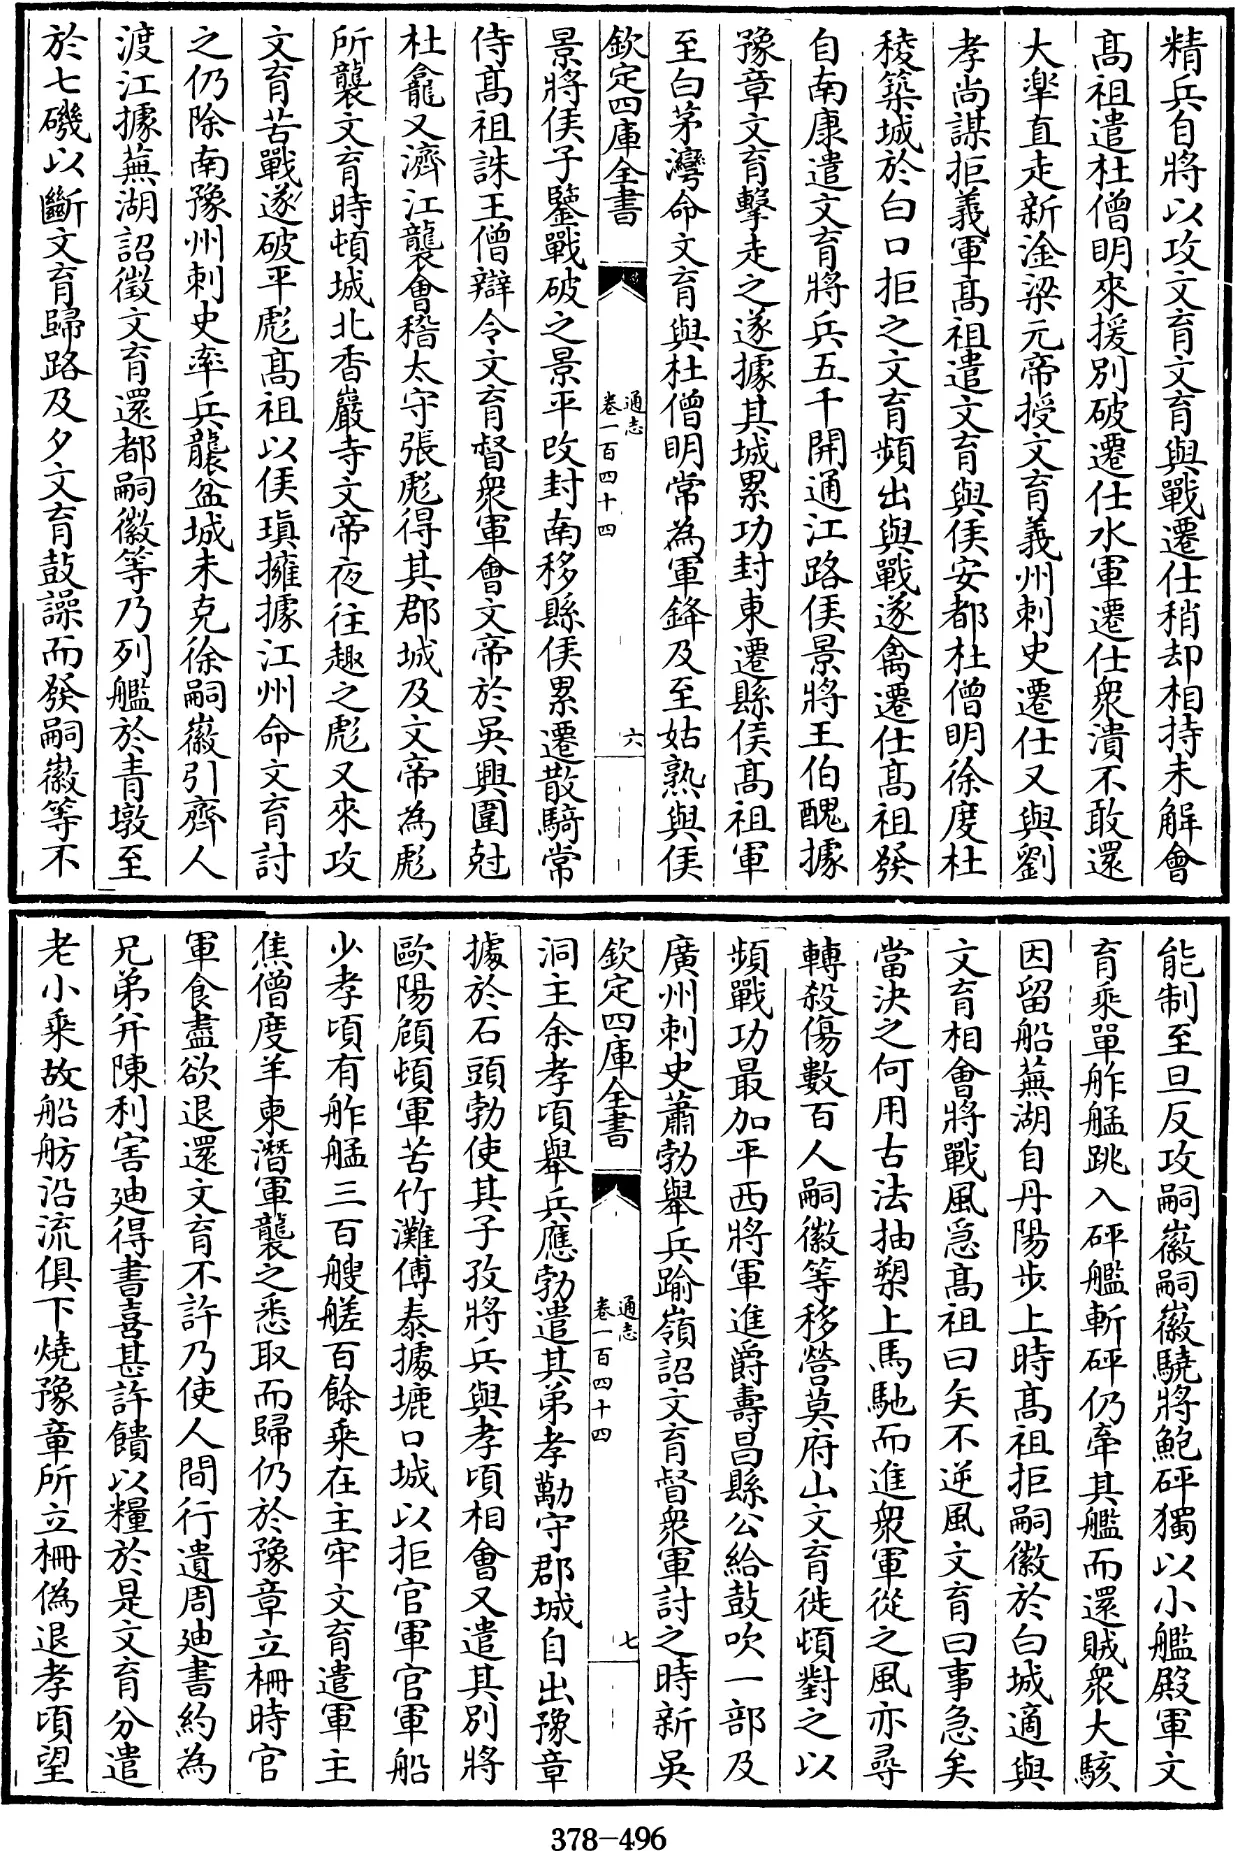 精兵自將以攻文育文育與戰遷仕稍却相持未解會
髙祖遣杜僧明來援别破遷仕水軍遷仕衆潰不敢還
大臯直走新淦梁元帝授文育義州刺史遷仕又與劉
孝尚謀拒義軍髙祖遣文育與侯安都杜僧明徐度杜
稜築城於白口拒之文育頻出與戰遂禽遷仕髙祖發
自南康遣文育將兵五千開通江路侯景將王伯醜據
豫章文育擊走之遂據其城累功封東遷縣侯髙祖軍
至白茅灣命文育與杜僧明常為軍鋒及至姑熟與侯
欽定四庫全書
通志
卷一百四十四
六
景將侯子鑒戰破之景平改封南移縣侯累遷散騎常
侍髙祖誅王僧辯令文育督衆軍會文帝於吳興圍尅
杜龕又濟江襲會稽太守張彪得其郡城及文帝為彪
所襲文育時頓城北香巖寺文帝夜往趣之彪又來攻
文育苦戰遂破平彪髙祖以侯瑱擁據江州命文育討
之仍除南豫州刺史率兵襲盆城未克徐嗣徽引齊人
渡江據蕪湖詔徵文育還都嗣徽等乃列艦於青墩至
於七磯以斷文育歸路及夕文育鼓譟而發嗣徽等不
能制至旦反攻嗣徽嗣徽驍將鮑砰獨以小艦殿軍文
育乘單舴艋跳入砰艦斬砰仍牽其艦而還賊衆大駭
因留船蕪湖自丹陽步上時髙祖拒嗣徽於白城適與
文育相會將戰風急髙祖曰矢不逆風文育曰事急矣
當決之何用古法抽槊上馬馳而進衆軍從之風亦尋
轉殺傷數百人嗣徽等移營莫府山文育徙頓對之以
頻戰功最加平西將軍進爵壽昌縣公給鼓吹一部及
廣州刺史蕭勃舉兵踰嶺詔文育督衆軍討之時新吳
欽定四庫全書
通志
卷一百四十四
七
洞主余孝頃舉兵應勃遣其弟孝勱守郡城自出豫章
據於石頭勃使其子孜將兵與孝頃相會又遣其别將
歐陽頠頓軍苦竹灘傅泰據墌口城以拒官軍官軍船
少孝頃有舴艋三百艘艖百餘乘在主牢文育遣軍主
焦僧度羊柬潛軍襲之悉取而歸仍於豫章立柵時官
軍食盡欲退還文育不許乃使人間行遺周迪書約為
兄弟并陳利害迪得書喜甚許饋以糧於是文育分遣
老小乘故船舫沿流俱下燒豫章所立柵偽退孝頃望
378-496